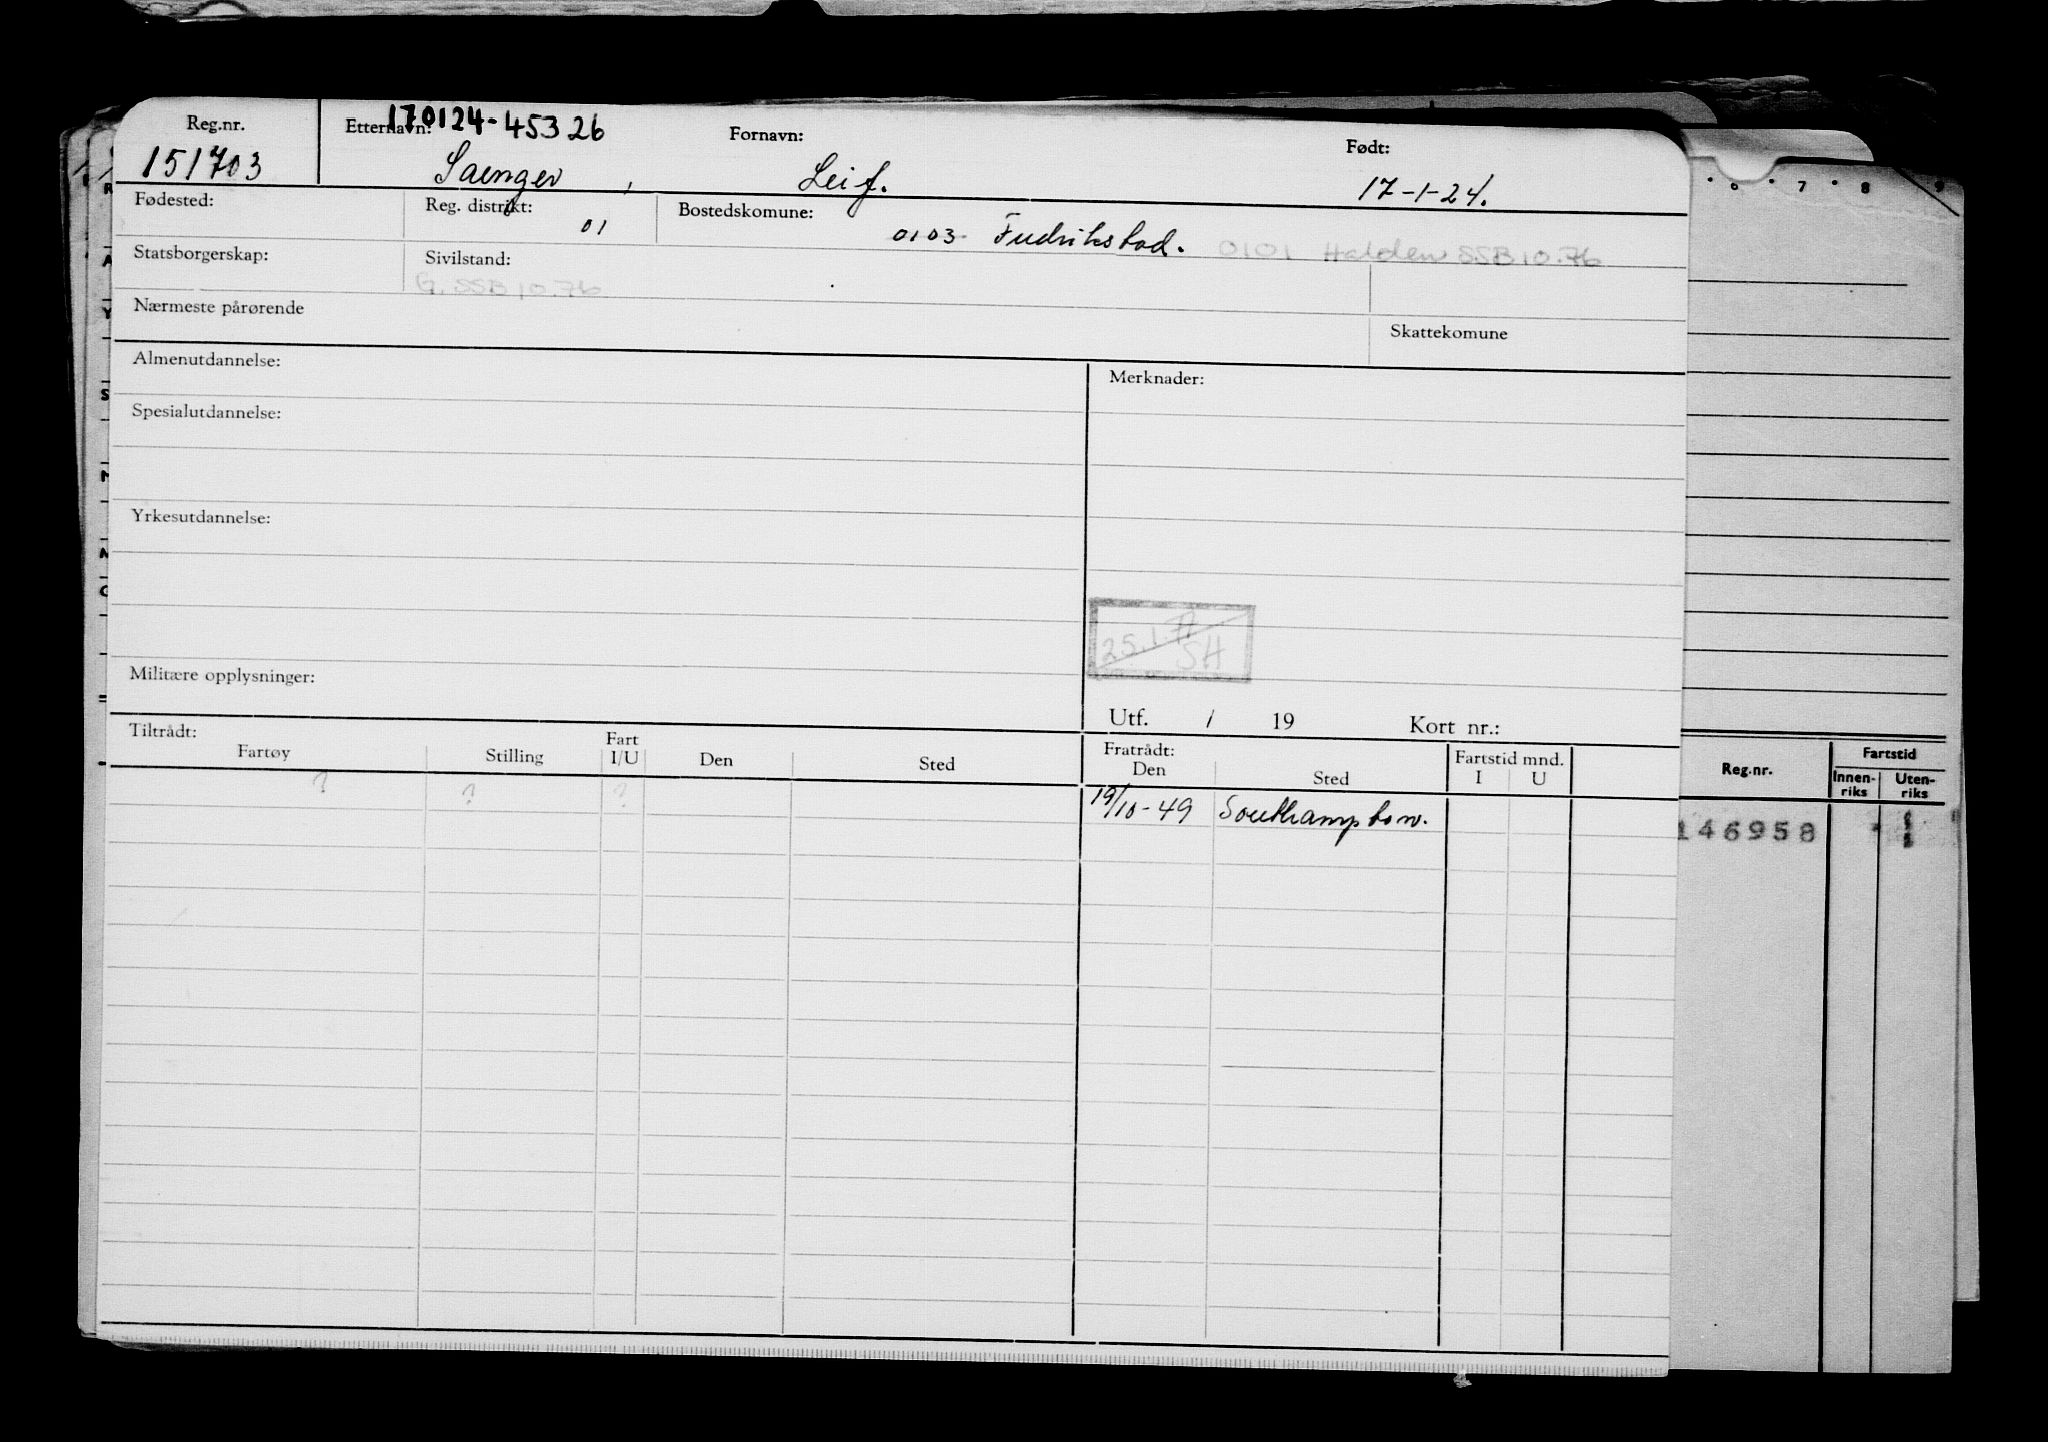 Reg.nr. Etternavn: 170124-45326 Fornavn: Født:
151703 Saenger, Leif. 17-1-24.
Fødested: Reg. distrikt: 01 Bostedskomune: 0103 Fredrikstad. 0101 Halden SSB 10.76
Statsborgerskap: Sivilstand:
G. SSB 10.76
Nærmeste pårørende Skattekomune
Almenutdannelse: Merknader:
Spesialutdannelse:
Yrkesutdannelse:
25.1.77
SH
Militære opplysninger:
Utf. / 19 Kort nr.:
Tiltrådt: Fratrådt:
Fartøy Stilling Fart I/U Den Sted Den Sted Fartstid mnd. I U
? ? ? 19/10-49 Southampton.
6 7 8 9
Reg.nr. Fartstid
Innen-riks Uten-riks
146958